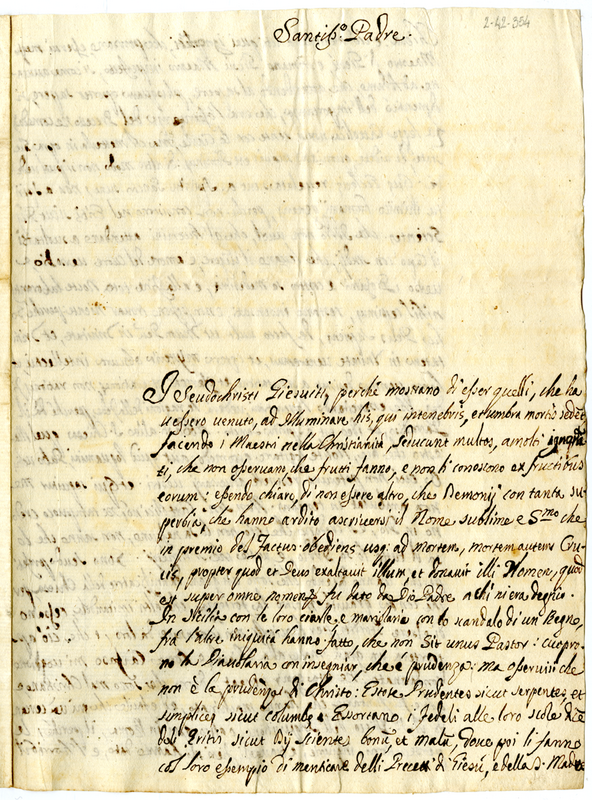 2-42-354
Santiss.º Padre.
I Seudochristi Giesuiti, perché mostrano di esser quelli, che ha
uessero uenuto, ad Illuminare his, qui intenebris, et umbra mortis sedet
facendo i Maestri nella Christianità, seducunt multos, a molti
ti, che non osseruano, che frutti fanno, e non li conoscono ex fructibus
eorum: essendo chiaro, di non essere altro, che Demonij con tanta su
perbia, che hanno ardito ascriuersi il Nome sublime e S.mo che
in premio del factus obediens usq: ad mortem, mortem autem Cru
cis, propter quod et Deus exaltauit illum, et donauit illi Nomen, quod
est super omne nomen, fu dato da Dio Padre a chi ni era degno.
In Sicilia con le loro ciarle, e con lo scandalo di un Regno,
frà l'altre iniquità hanno fatto, che non sit unus Pastor:
no la con insegniar, che è prudenza: ma osseruisi che
non è la prudenza di Christo: Estote Prudentes sicut serpentes, et
simplices sicut columbe. Essortano i fedeli alle loro scole
del Eritis sicut Dij scientes bonũ, et malũ, doue poi li fanno
col loro essempio di menticare delli Precetti di Giesù, e della S. Madre